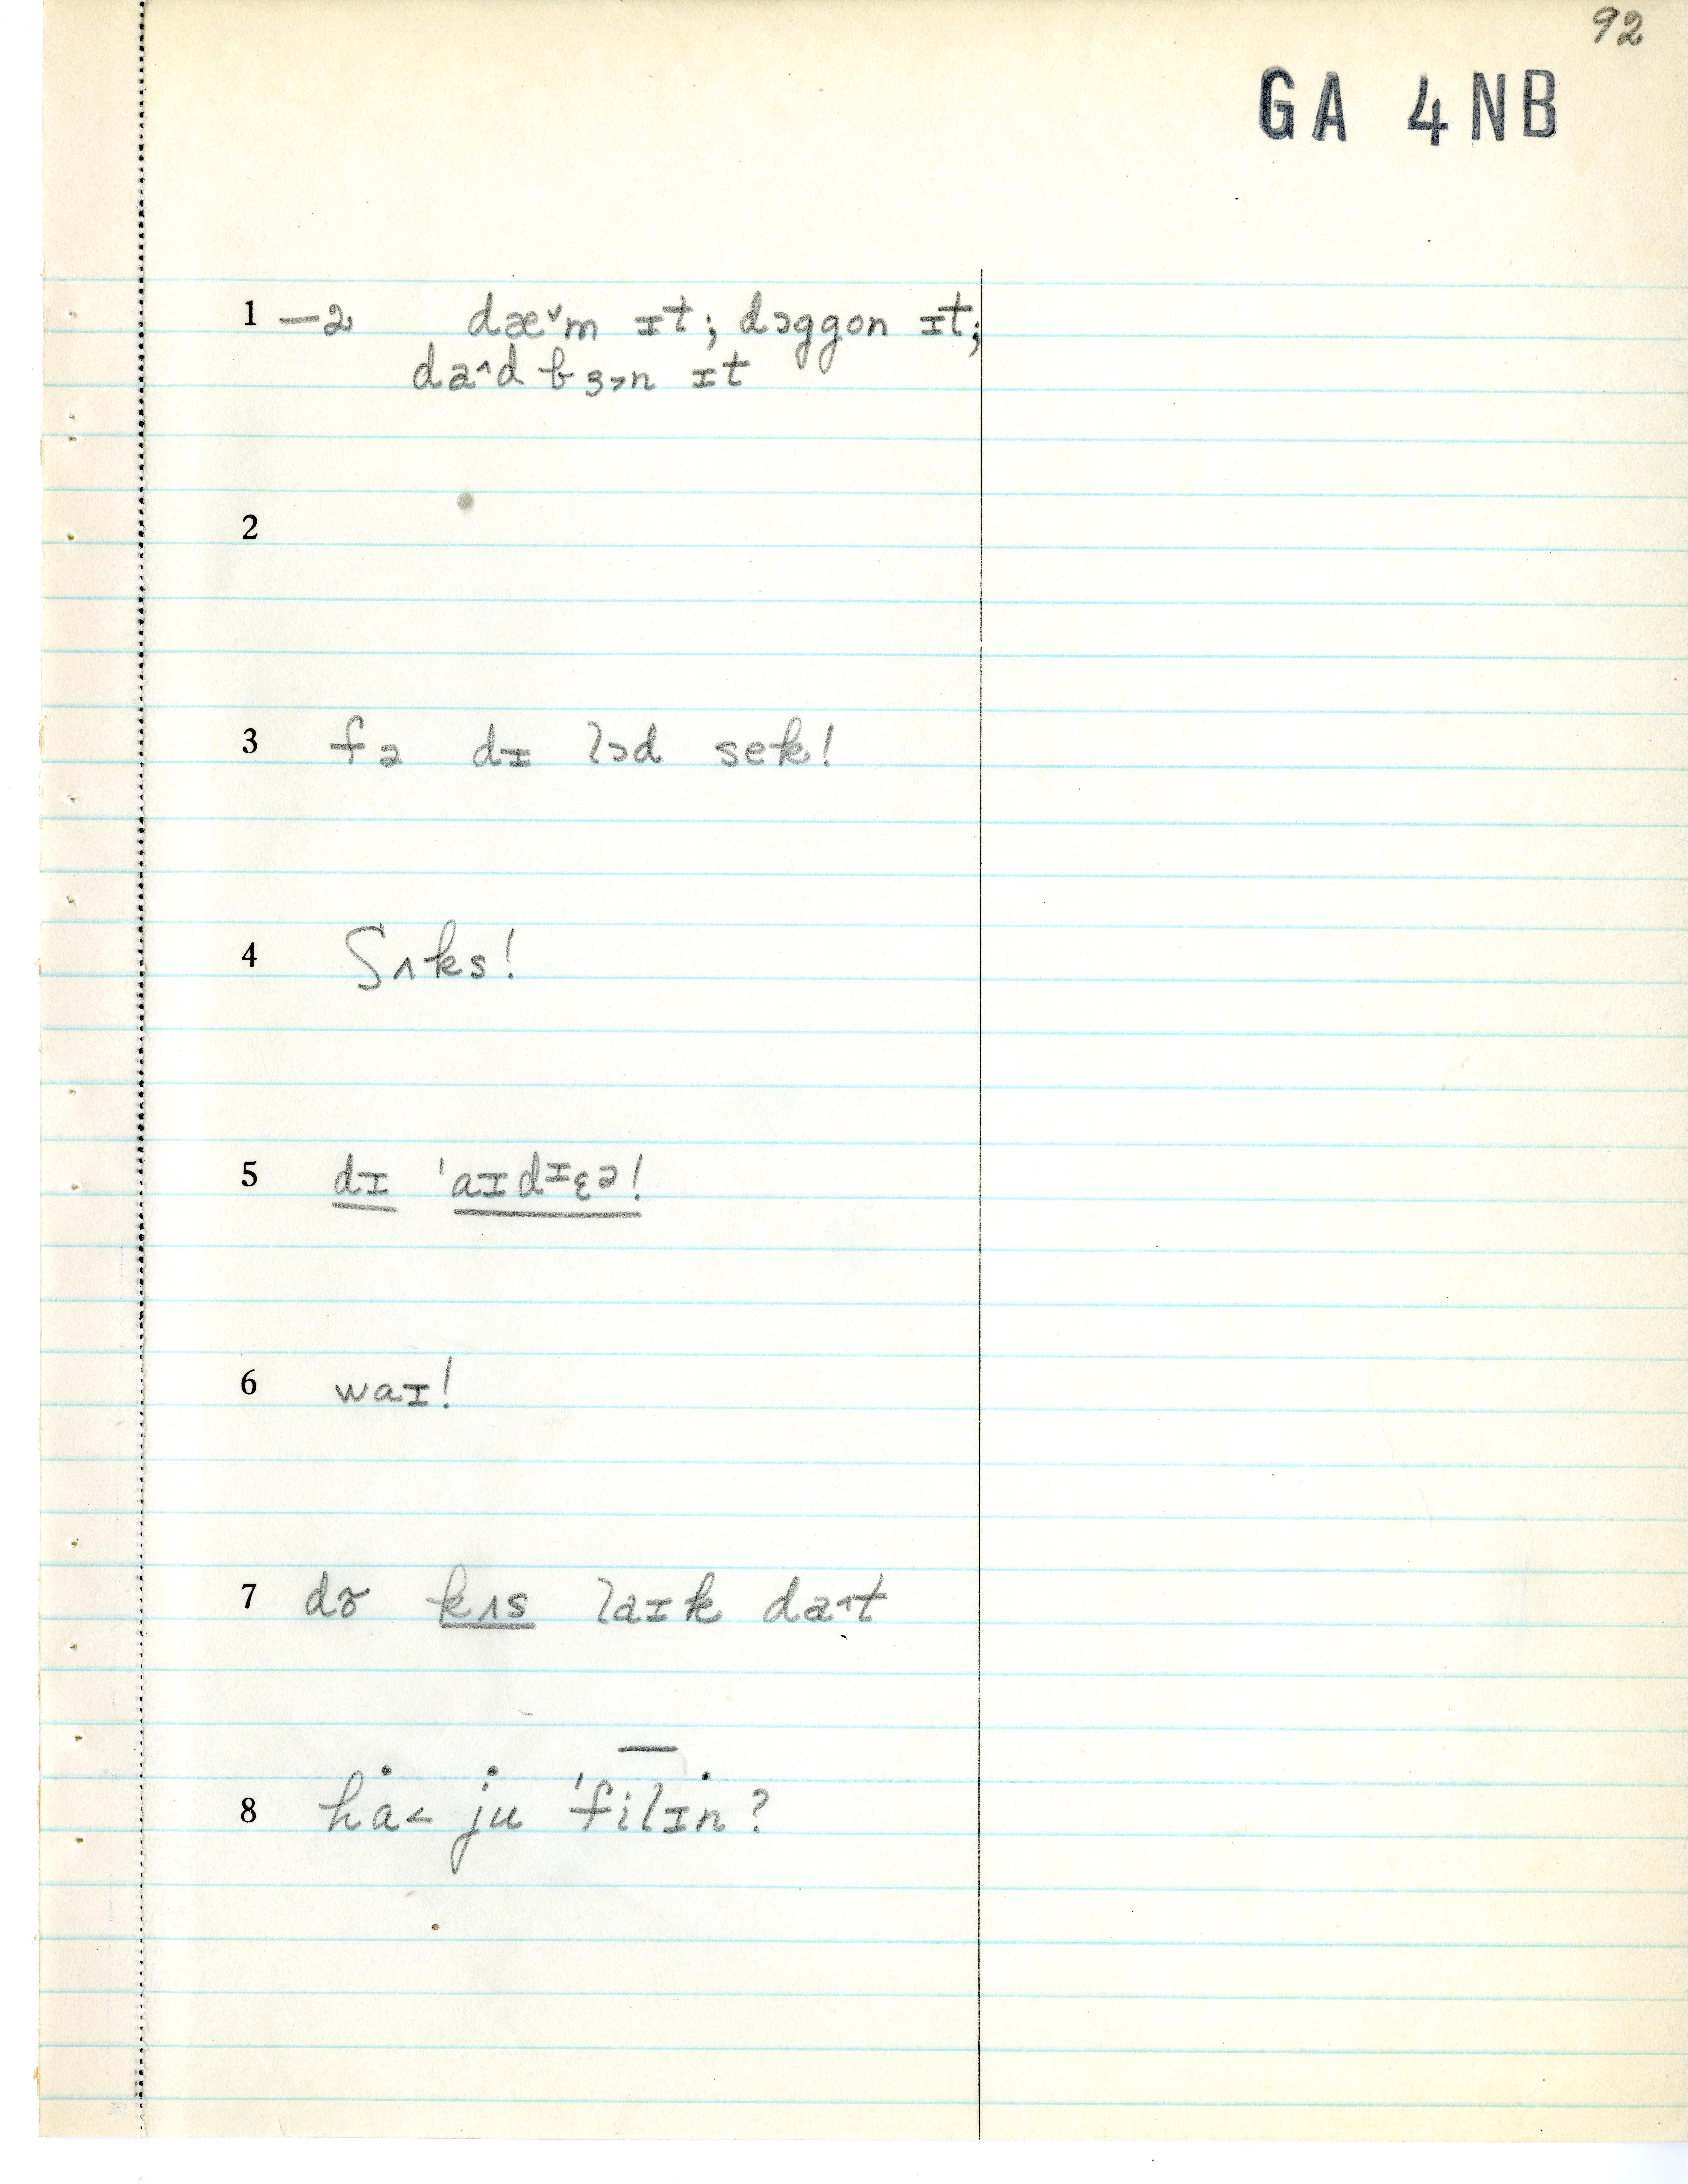 92
GA 4NB
1 —2 dæ˅m ɪt; dɔggon ɪt;
da˄d bɜ˃n ɪt
2
3 fə dɪ lɔd sek!
4 ʃʌks!
5 dɪ ˈaɪdɪɛə!
6 waɪ!
7 dɚ kʌs laɪk da˄t
8 ha˂ ju ˈfilɪn?